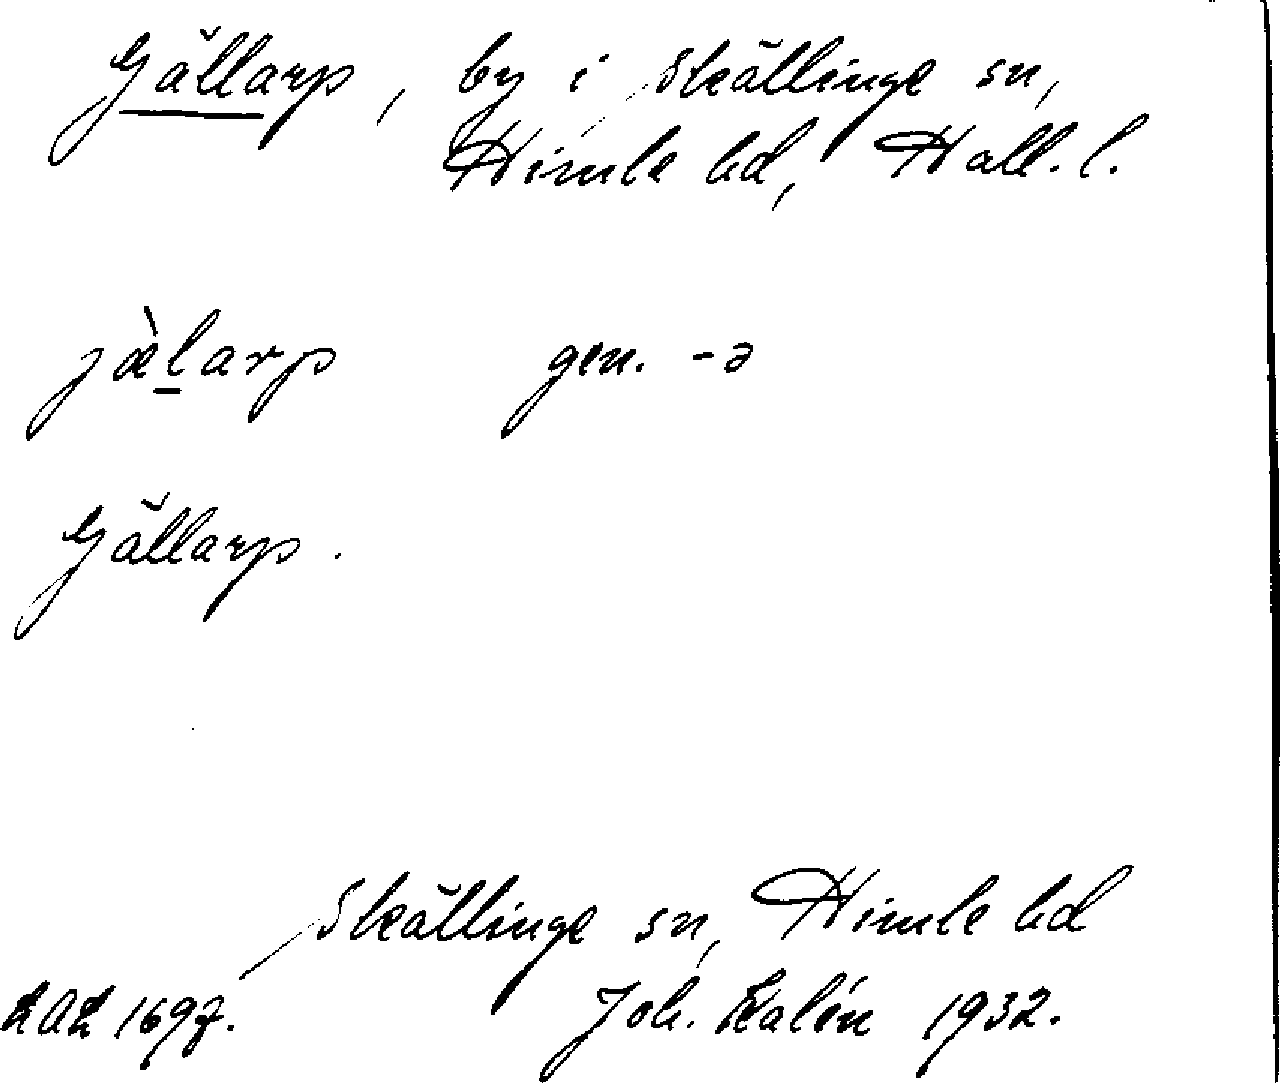 Gällarp, by i Skällinge sn,
Himle hd, Hall. l.
jæ̀larp gen. -ə
Gällarp.
Skällinge sn, Himle hd
LAL 1697. Joh. Kalén 1932.